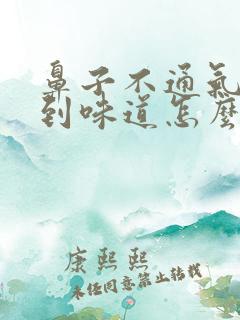 鼻子不通氣
到味道怎麽
康熙熙
未经同意禁止转载